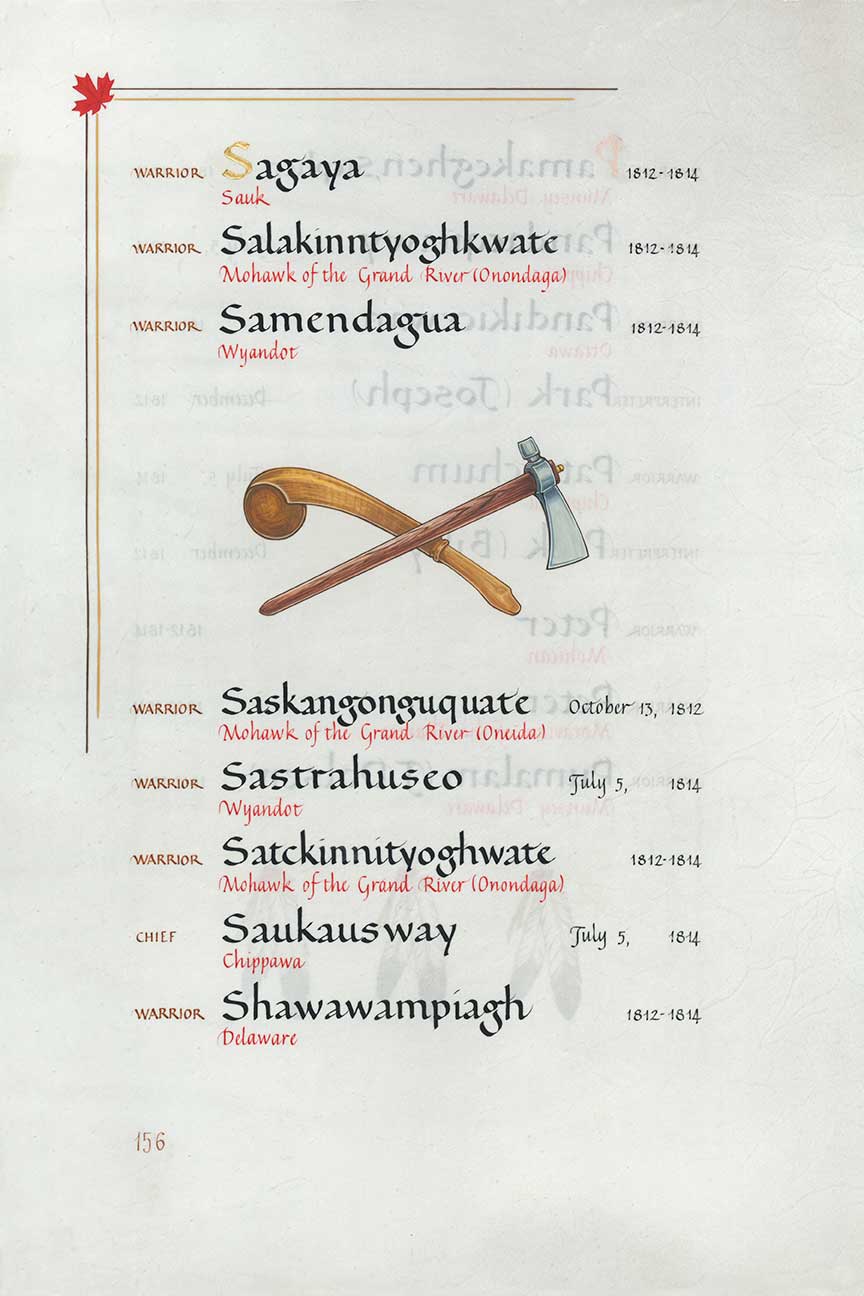 WARRIOR Sagaya 1812-1814
Sauk
WARRIOR Salakinntyoghkwate 1812-1814
Mohawk of the Grand River (Onondaga)
WARRIOR Samendagua 1812-1814
Wyandot
WARRIOR Saskangonguquate October 13, 1812
Mohawk of the Grand River (Oneida)
WARRIOR Sastrahuseo July 5, 1814
Wyandot
WARRIOR Satckinnityoghwate 1812-1814
Mohawk of the Grand River (Onondaga)
CHIEF Saukausway July 5, 1814
Chippawa
WARRIOR Shawawampiagh 1812-1814
Delaware
156